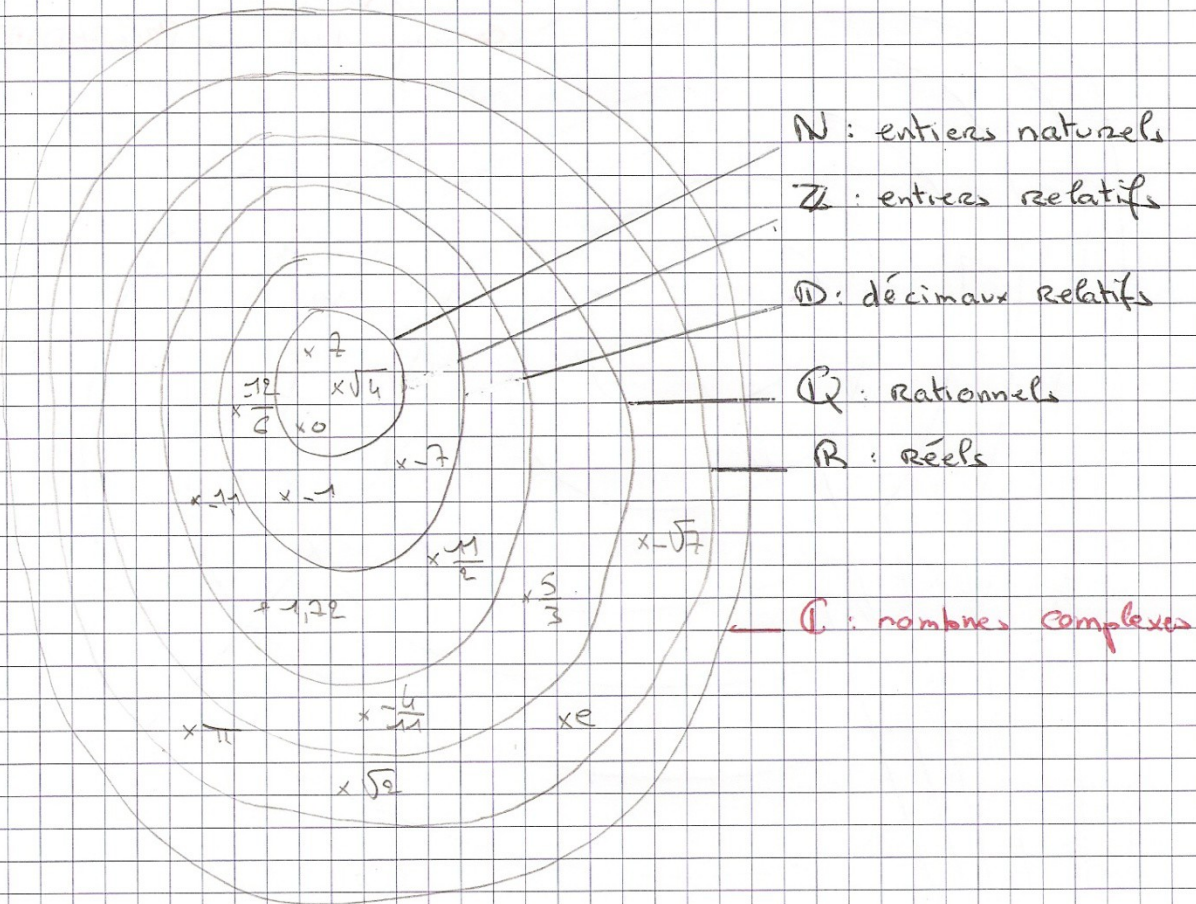 ℕ : entiers naturels
ℤ : entiers relatifs
𝔻 : décimaux relatifs
ℚ : rationnels
ℝ : réels
ℂ : nombres complexes
× 7
× √4
× -12/6
× 0
× -7
× -1,1
× -1
× 11/2
× -√7
× 5/3
× 1,72
× -4/11
× e
× π
× √2